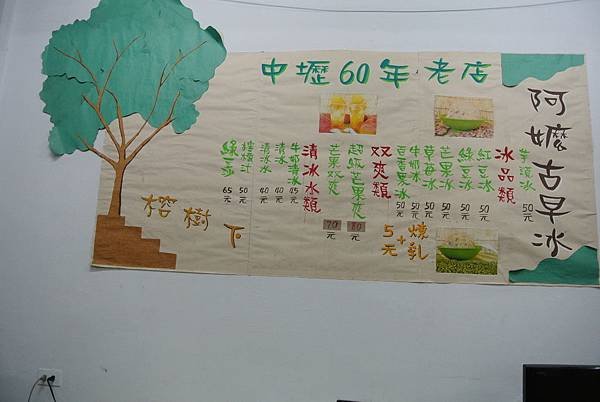 中壢60年老店
阿嬤古早冰
冰品類
芋頭冰 50元
紅豆冰 50元
綠豆冰 50元
芒果冰 50元
草莓冰 50元
牛奶冰 50元
百香果冰 50元
煉乳+5元
双爽類
超級芒果爽 80元
芒果双爽 70元
清冰水類
牛奶清冰 45元
清冰 40元
清冰水 40元
檸檬汁 50元
綠豆 65元
榕樹下